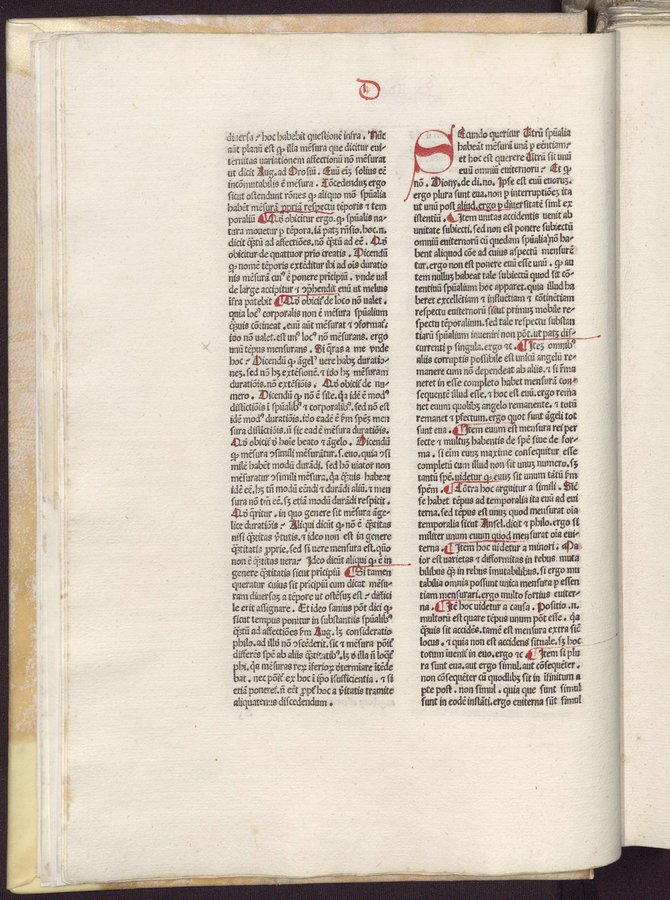 D
diuersa. hoc habebit questionē infra. Nūc
aūt planū est ꝙ illa mēsura que dicitur eui-
ternitas variationem affectionū nō mēsurat
ut dicit Aug. ad Orosiū. Euū eīz solius eē
incōmutabilis ē mēsura. Cōcedendus ergo
sicut ostendunt rōnes ꝙ aliquo mō spūalia
habēt mēsurā ꝓpriā respectu tēporis et tem
poraliū Qd obicitur ergo. ꝙ spūalis na-
tura mouetur ꝑ tēpora. iā patꝫ rn̄sio. hoc.n.
dicit quātū ad affectiōes. nō quātū ad eē. Qd
obicitur de quattuor prio creatis. Dicendū
ꝙ nomē tēporis extēditur ibi ad oīs duratio
nis mēsurā cuiꝰ ē ponere pricipiū. vnde val
de large accipitur et cōprehendit euū ut melius
īfra patebit Qd obicit' de loco nō ualet.
quia locꝰ corporalis non ē mēsura spūalium
quāuis cōtineat. euū aūt mēsurat et cōformat.
itō nō ualet. est unꝰ locꝰ nō mēsurans. ergo
unū tēpus mensurans. Si queras a me vnde
hoc. Dicendū ꝙ āgelꝰ uere habꝫ duratio-
nes. sed nō hꝫ extēsionē. et ido hꝫ mēsuram
duratiōis. nō extēsiōis. Qd obicit' de nu-
mero. Dicendū ꝙ nō ē sile. qa idē ē modꝰ
distictiōis ī spūalibꝰ et corporalibꝰ. sed nō est
idē modꝰ duratiōis. ido eadē ē fm spēꝫ men
sura distictiōis. nō sic eadē mēsura duratiōis.
Qd obicit' de hoīe beato et āgelo. Dicendū
ꝙ mēsura cōsimili mēsurātur. s. euo. quia cōsi
mile habēt modū durādi. sed hō uiator non
mēsuratur cōsimili mēsura. qāuis habeat
idē eē. hꝫ tn̄ modū eēndi et durādi aliū. et men
sura nō tm̄ eē. sꝫ etiā modū durādi respicit.
Qd qritur. in quo genere sit mēsura āge-
lice duratiōis. Aliqui dicūt ꝙ nō ē quātitas
nisi quātitas v̄tutis. et ideo non est in genere
quātitatis ꝓprie. sed si uere mensura est. quō
non ē quātitas vera. Ideo dicūt aliqui ꝙ ē in
genere quātitatis sicut prīcipiū Si tamen
queratur cuius sit principiū cum dicāt mēsu-
ram diuersaꝫ a tēpore ut ostēsuꝫ est. difficī
le erit assignare. Et ideo sanius pōt dici ꝙ
sicut tempus ponitur in substantiis spūalibꝰ
quātū ad affectiōes fm Aug. lꝫ consideratio
philo. ad illū nō ascēderit. sic et mēsura pōsꝫ
differēs spē ab aliis quātitatibꝰ. lꝫ
phi. qa mēsuras reꝝ īferioꝝ determiare itēde
bat. nec pōsꝫ ex hoc ī ipō īsufficiētia. et si
etiā poneret'. n̄ eēt ꝓpt' hoc a v̄itatis tramite
aliquatenus discedendum.
SEcundo queritur Utrū spūalia
habeāt mēsurā unā ꝑ eēntiam.
et hoc est querere Utrū sit unū
euū omniū euiternoꝝ. Et ꝙ
nō. Diony. de di. no. Ipse est euū euoruꝫ.
ergo plura sunt eua. non ꝑ interruptiōeꝫ ita
ut unū post aliud. ergo ꝑ diuersitatē siml ex
istentiū. Item unitas accidentis uenit ab
unitate subiecti. sed non est ponere subiectū
omniū euiternoꝝ cū quedam spūaliaꝫ nō ha-
bent aliquod cōe ad cuius aspectū mensurē
tur. ergo non est ponere euū esse unū. ꝙ au
tem nulluꝫ habeat tale subiectū quod sit cō-
tentiuū spūalium hoc apparet. quia illud ha
beret excellētiam et īfluētiam et cōtinētiam
respectu euiternoꝝ sicut primuꝫ mobile re-
spectu tēporalium. sed tale respectu substan
tiarū spūalium inueniri non pōt. ut patꝫ dis-
currenti ꝑ singula. ergo etc. Iteꝫ omnibꝰ
aliis corruptis possibile est unicū angelū re-
manere cum nō dependeat ab aliis. et si rema
neret in esse completo habet mensurā con-
sequentē illud esse. et hoc est euū. ergo rema
net euum quolibꝫ angelo remanente. et totū
remanet et ꝑfectum. ergo quot sunt āgeli tot
sunt eua. Item euum est mēsura rei per
fecte et multuꝫ habentis de spē siue de for-
ma. si eīm euuꝫ maxime consequitur esse
completū cum illud non sit unuꝫ numero. sꝫ
tantū spē. uidetur ꝙ euuꝫ sit unum tātū fm
spēm. Cōtra hoc arguitur a simili. Sic
se habet tēpus ad temporalia ita euū ad eui
terna. sed tēpus est unuꝫ quod mensurat oīa
temporalia sicut Ansel. dicit et philo. ergo si
militer unum euum quod mensurat oīa eui-
terna. Item hoc uidetur a minori. Ma
ior est varietas et difformitas in rebus muta
bilibus quā in rebus īmutabilibus. si ergo mu
tabilia omnia possunt unica mensura ꝑ essen
tiam mensurari. ergo multo fortius euiter-
na. Itē hoc uidetur a causa. Positio.n.
multorū est quare tēpus unum pōt esse. qa
quāuis sit accidēs. tamē est mensura extra sic
locus. et quia non est accidens situale. sꝫ hoc
totum īuenit' in euo. ergo etc. Item si plu
ra sunt eua. aut ergo simul. aut cōsequēter.
non cōsequēter cū quodlibꝫ sit in īfinitum a
parte post. non simul. quia que sunt simul
sunt in eodē instāti. ergo euiterna sūt simul